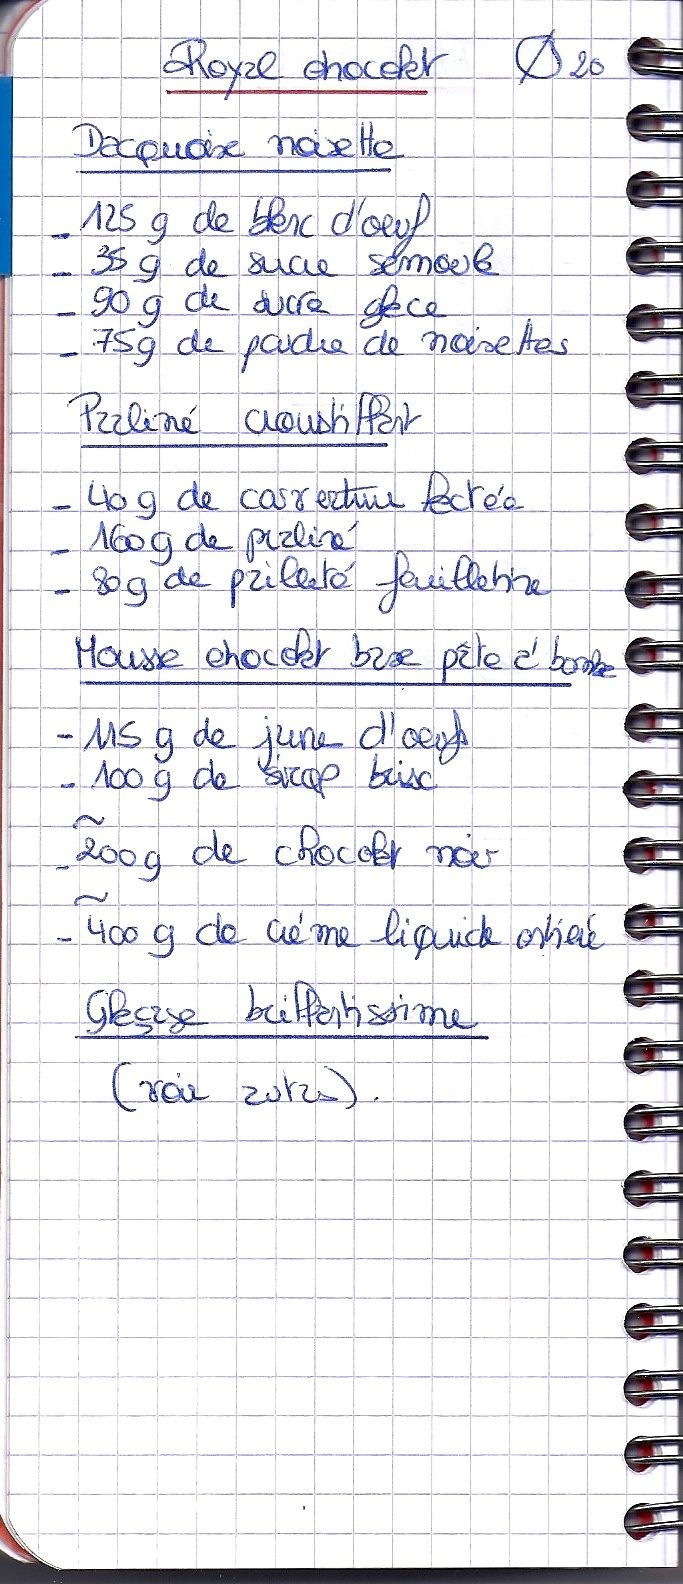 Royal chocolat Ø 20
Dacquoise noisette
- 125 g de blanc d'oeuf
- 35 g de sucre semoule
- 90 g de sucre glace
- 75g de poudre de noisettes
Praliné croustillant
- 40 g de couverture lactée
- 160 g de praliné
- 80g de pailleté feuilletine
Mousse chocolat base pâte à bombe
- 115 g de jaune d'oeufs
- 100 g de sirop
- ~200g de chocolat noir
- ~400 g de crème liquide
Glaçage brillantissime
(voir extra).